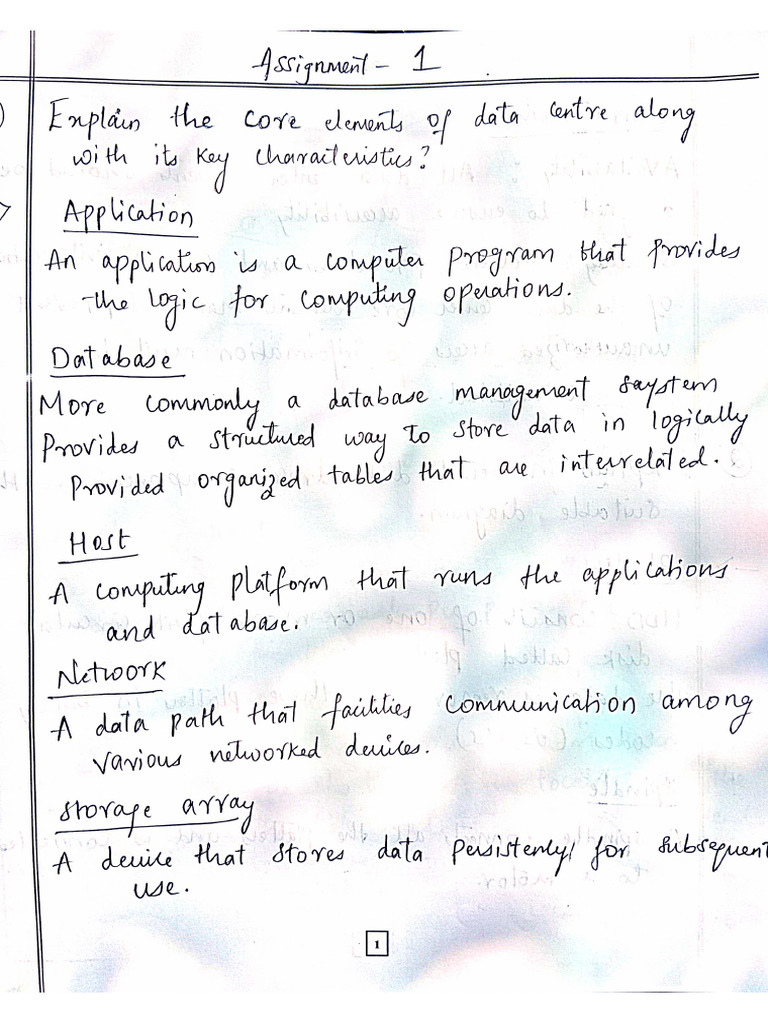 Assignment - 1
)
Explain the core elements of data centre along
with its key characteristics?
Application
An application is a computer program that provides
the logic for computing operations.
Database
More commonly a database management saystem
Provides a structured way to store data in logically
Provided organized tables that are interrelated.
Host
A computing platform that runs the applications
and database.
Network
A data path that facilities communication among
various networked devices.
Storage array
A device that stores data persistenly for subsequent
use.
1